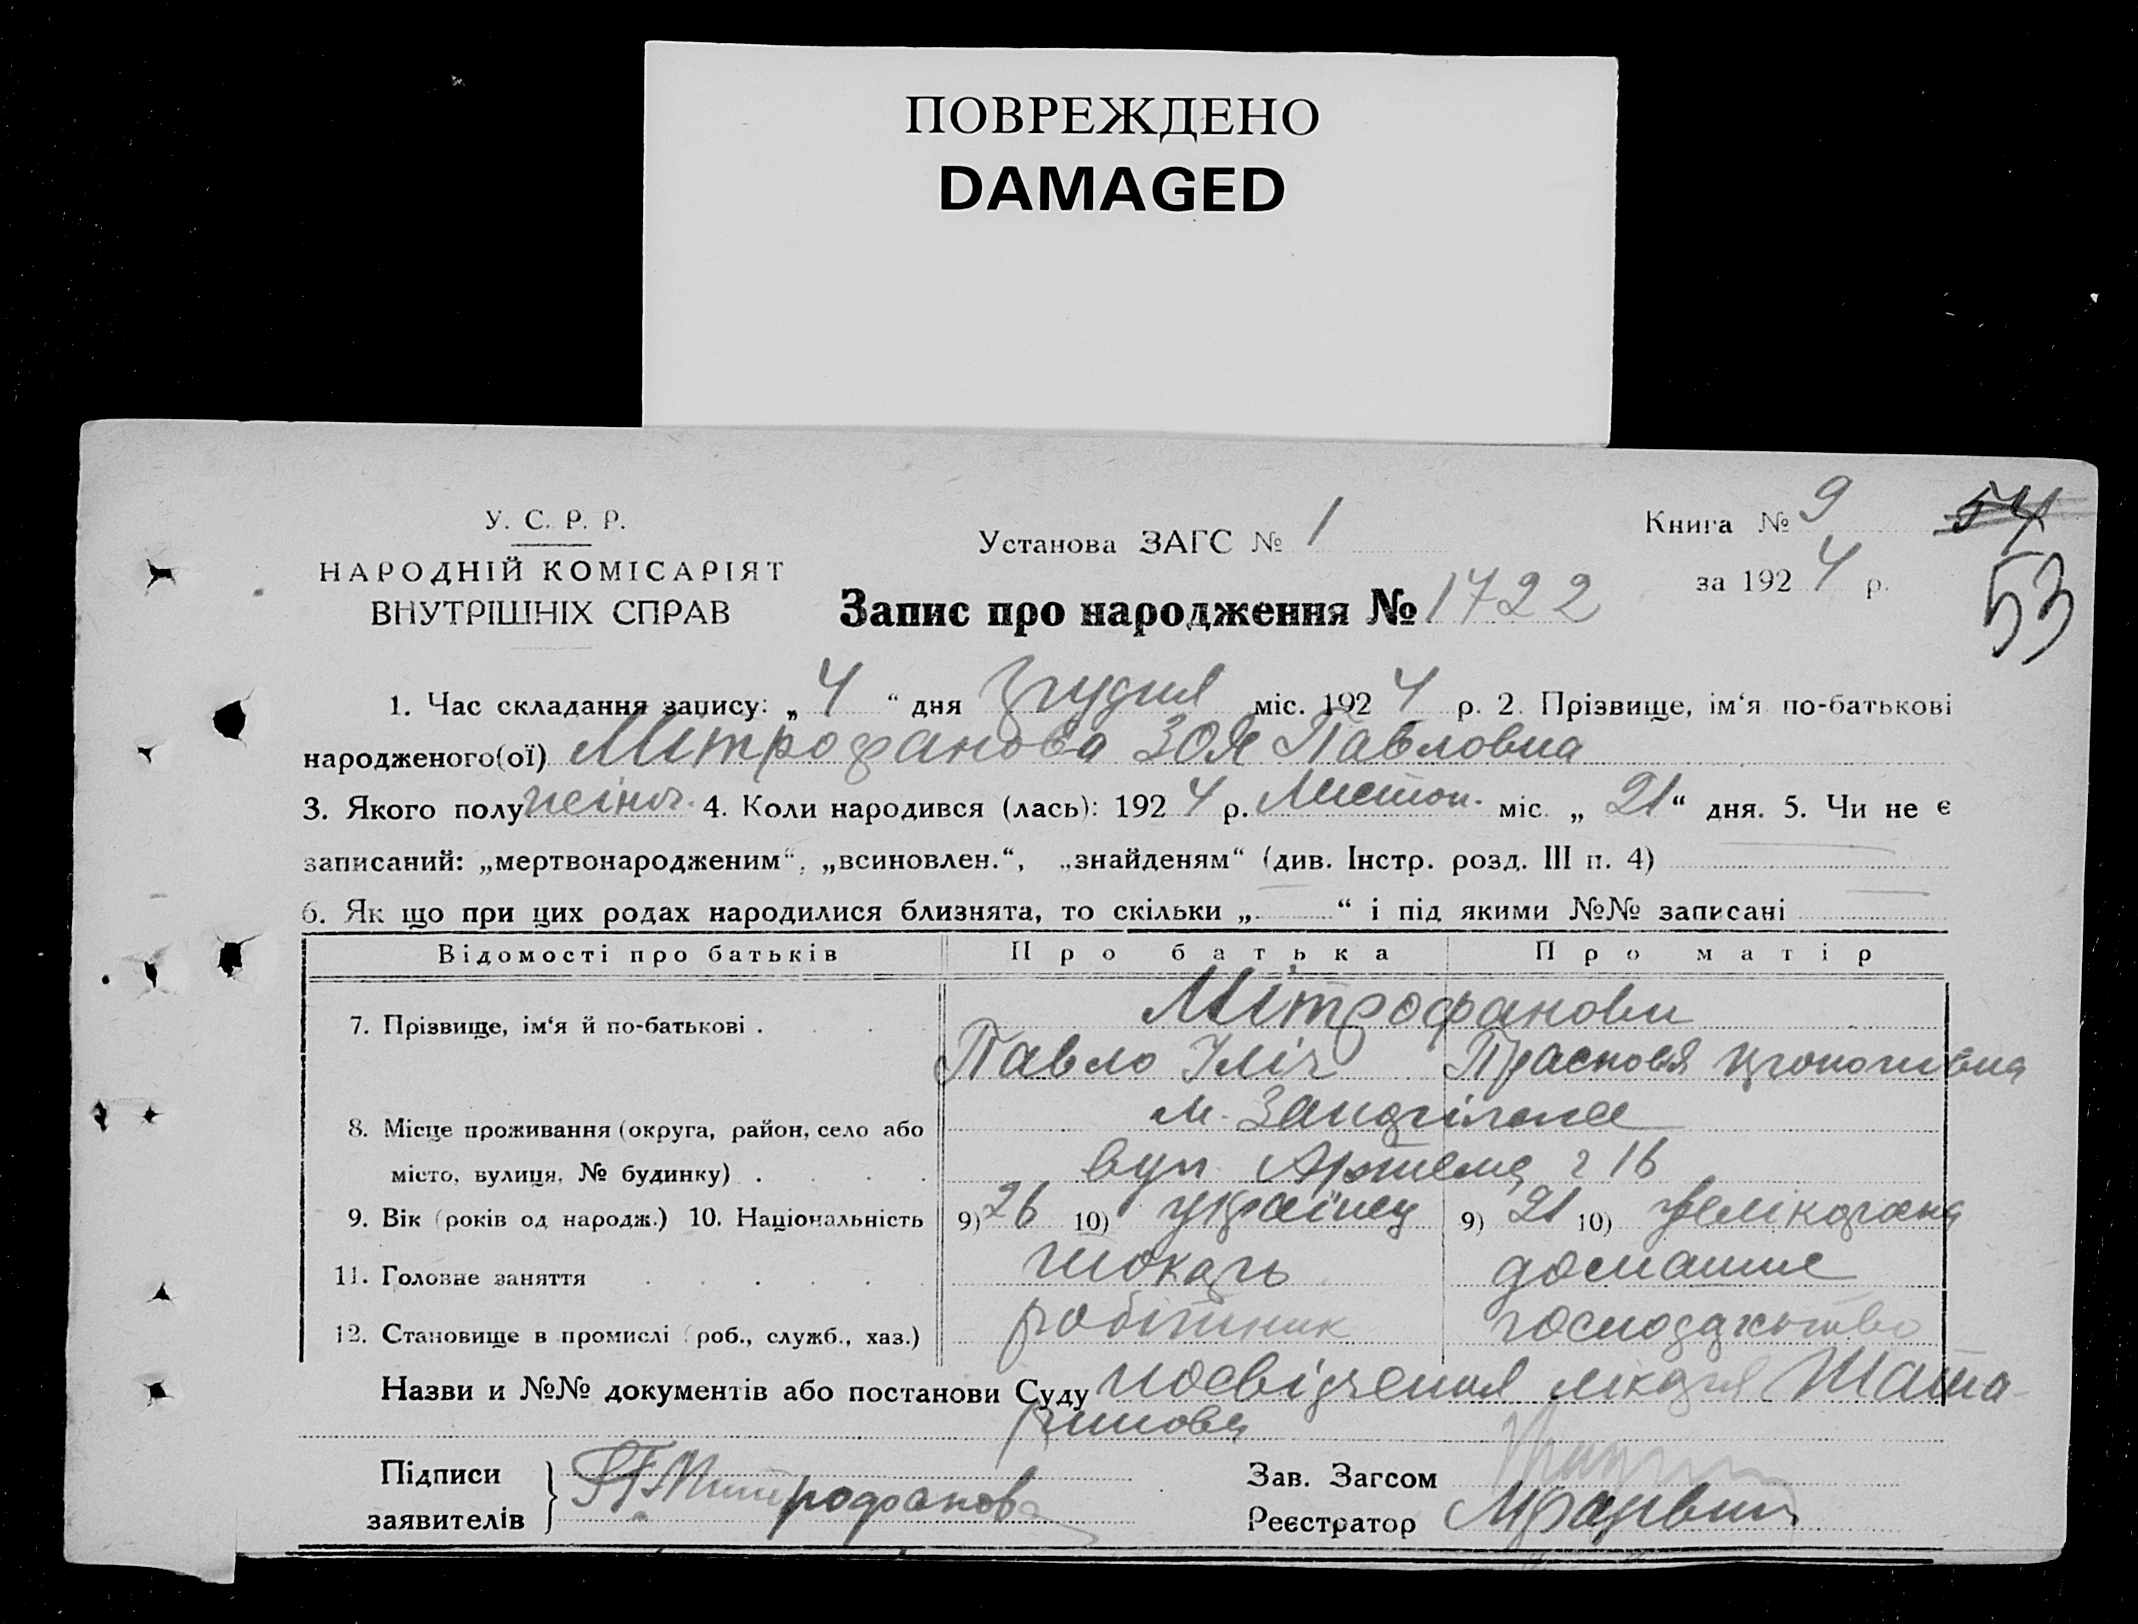 ПОВРЕЖДЕНО
DAMAGED
У. С. Р. Р.
НАРОДНІЙ КОМІСАРІЯТ
ВНУТРІШНІХ СПРАВ
Установа ЗАГС № 1
Книга № 9
54
за 1924 р.
53
Запис про народження № 1722
1. Час складання запису: „ 4 “ дня грудня міс. 1924 р. 2. Прізвище, ім‘я по-батькові
народженого(ої) Мітрофанова Зоя Павловна
3. Якого полу жіноч. 4. Коли народився (лась): 1924 р. Листоп. міс. „ 21 “ дня. 5. Чи не є
записаний: „мертвонародженим“, „всиновлен.“, „знайденям“ (див. Інстр. розд. III п. 4)
6. Як що при цих родах народилися близнята, то скільки „ “ і під якими №№ записані
Відомості про батьків Про батька Про матір
7. Прізвище, ім‘я й по-батькові . Мітрофанови
Павло Ілліч Прасковія
8. Місце проживання (округа, район, село або м.
місто, вулиця, № будинку) . вул. Артема 16
9. Вік (років од народж.) 10. Національність 9) 26 10) українец 9) 21 10)
11. Головне заняття токарь домашнє
12. Становище в промислі (роб., служб., хаз.) робітник господарьство
Назви и №№ документів або постанови Суду посвідчення лікаря
Підписи
заявителів
Мітрофанов
Зав. Загсом
Реєстратор